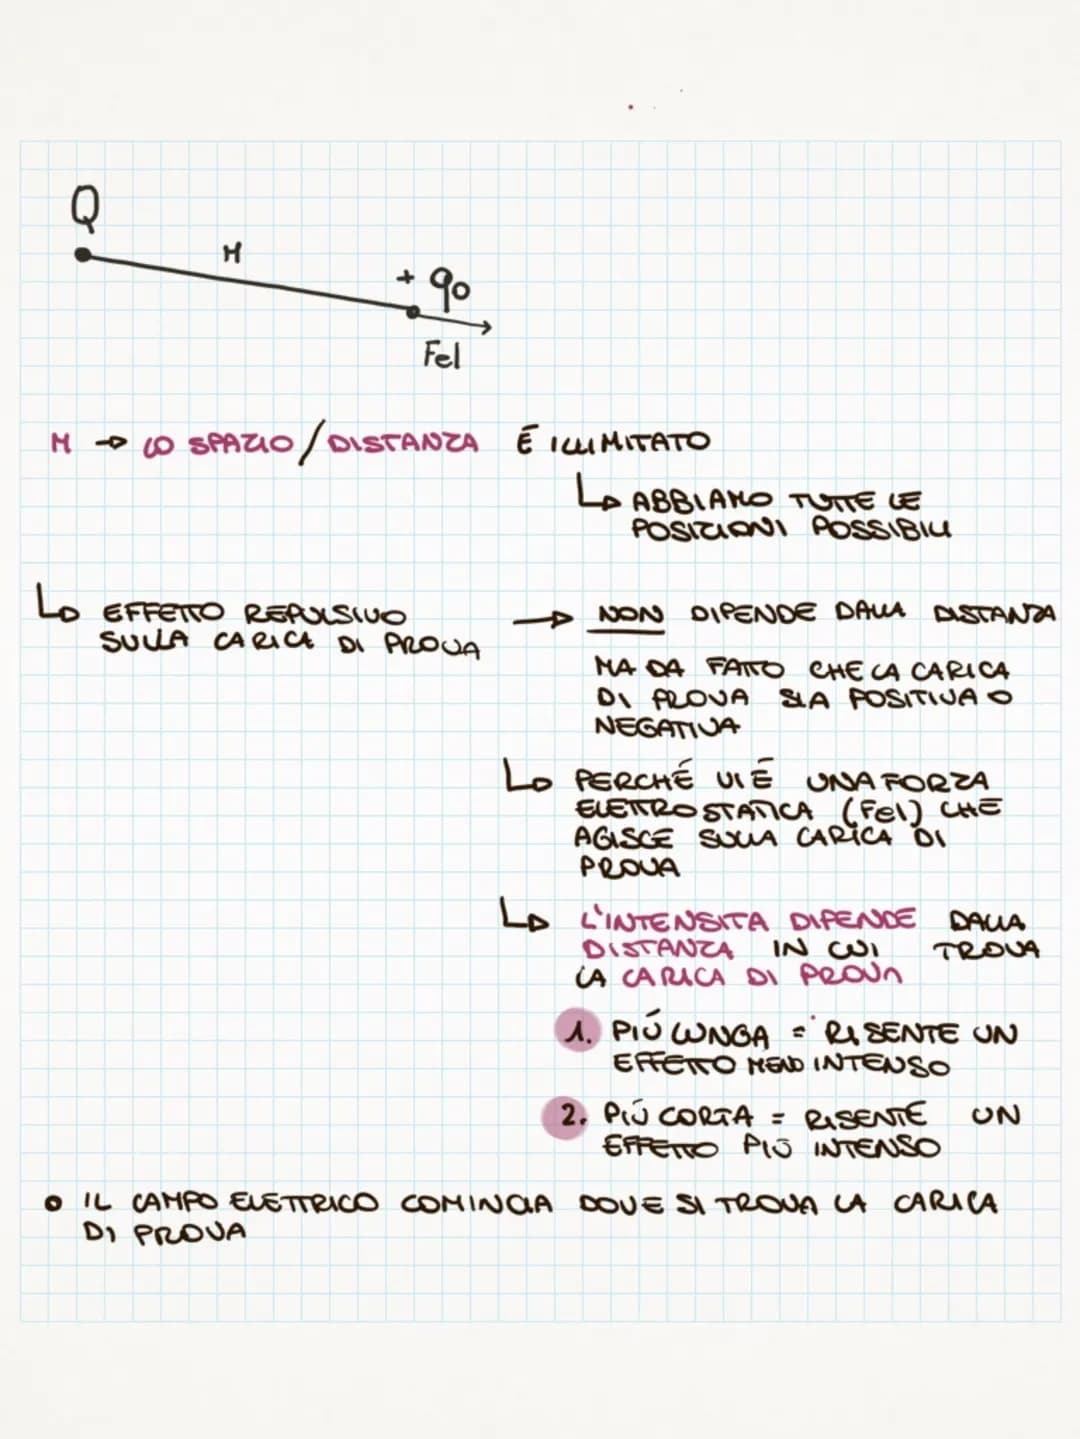 Q
M
+ q0
Fel
M → LO SPAZIO / DISTANZA É ILLIMITATO
↳ ABBIAMO TUTTE LE
POSIZIONI POSSIBILI
↳ EFFETTO REPULSIVO
SULLA CARICA DI PROVA
→ NON DIPENDE DALLA DISTANZA
MA DA FATTO CHE LA CARICA
DI PROVA SIA POSITIVA O
NEGATIVA
↳ PERCHÉ VI É UNA FORZA
ELETTROSTATICA (Fel) CHE
AGISCE SULLA CARICA DI
PROVA
↳ L'INTENSITA DIPENDE DALLA
DISTANZA IN CUI TROVA
LA CARICA DI PROVA
1. PIÚ LUNGA = RISENTE UN
EFFETTO MENO INTENSO
2. PIÚ CORTA = RISENTE UN
EFFETTO PIÚ INTENSO
• IL CAMPO ELETTRICO COMINCIA DOVE SI TROVA LA CARICA
DI PROVA